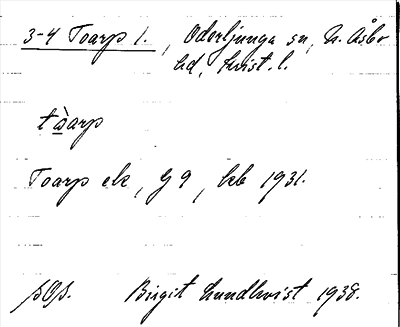 3-4 Toarp 1., Oderljunga sn, N. Åsbo
hd, Krist. l.
tàarp
Toarp ek, G 9, kb 1931.
Birgit Lundkvist 1938.